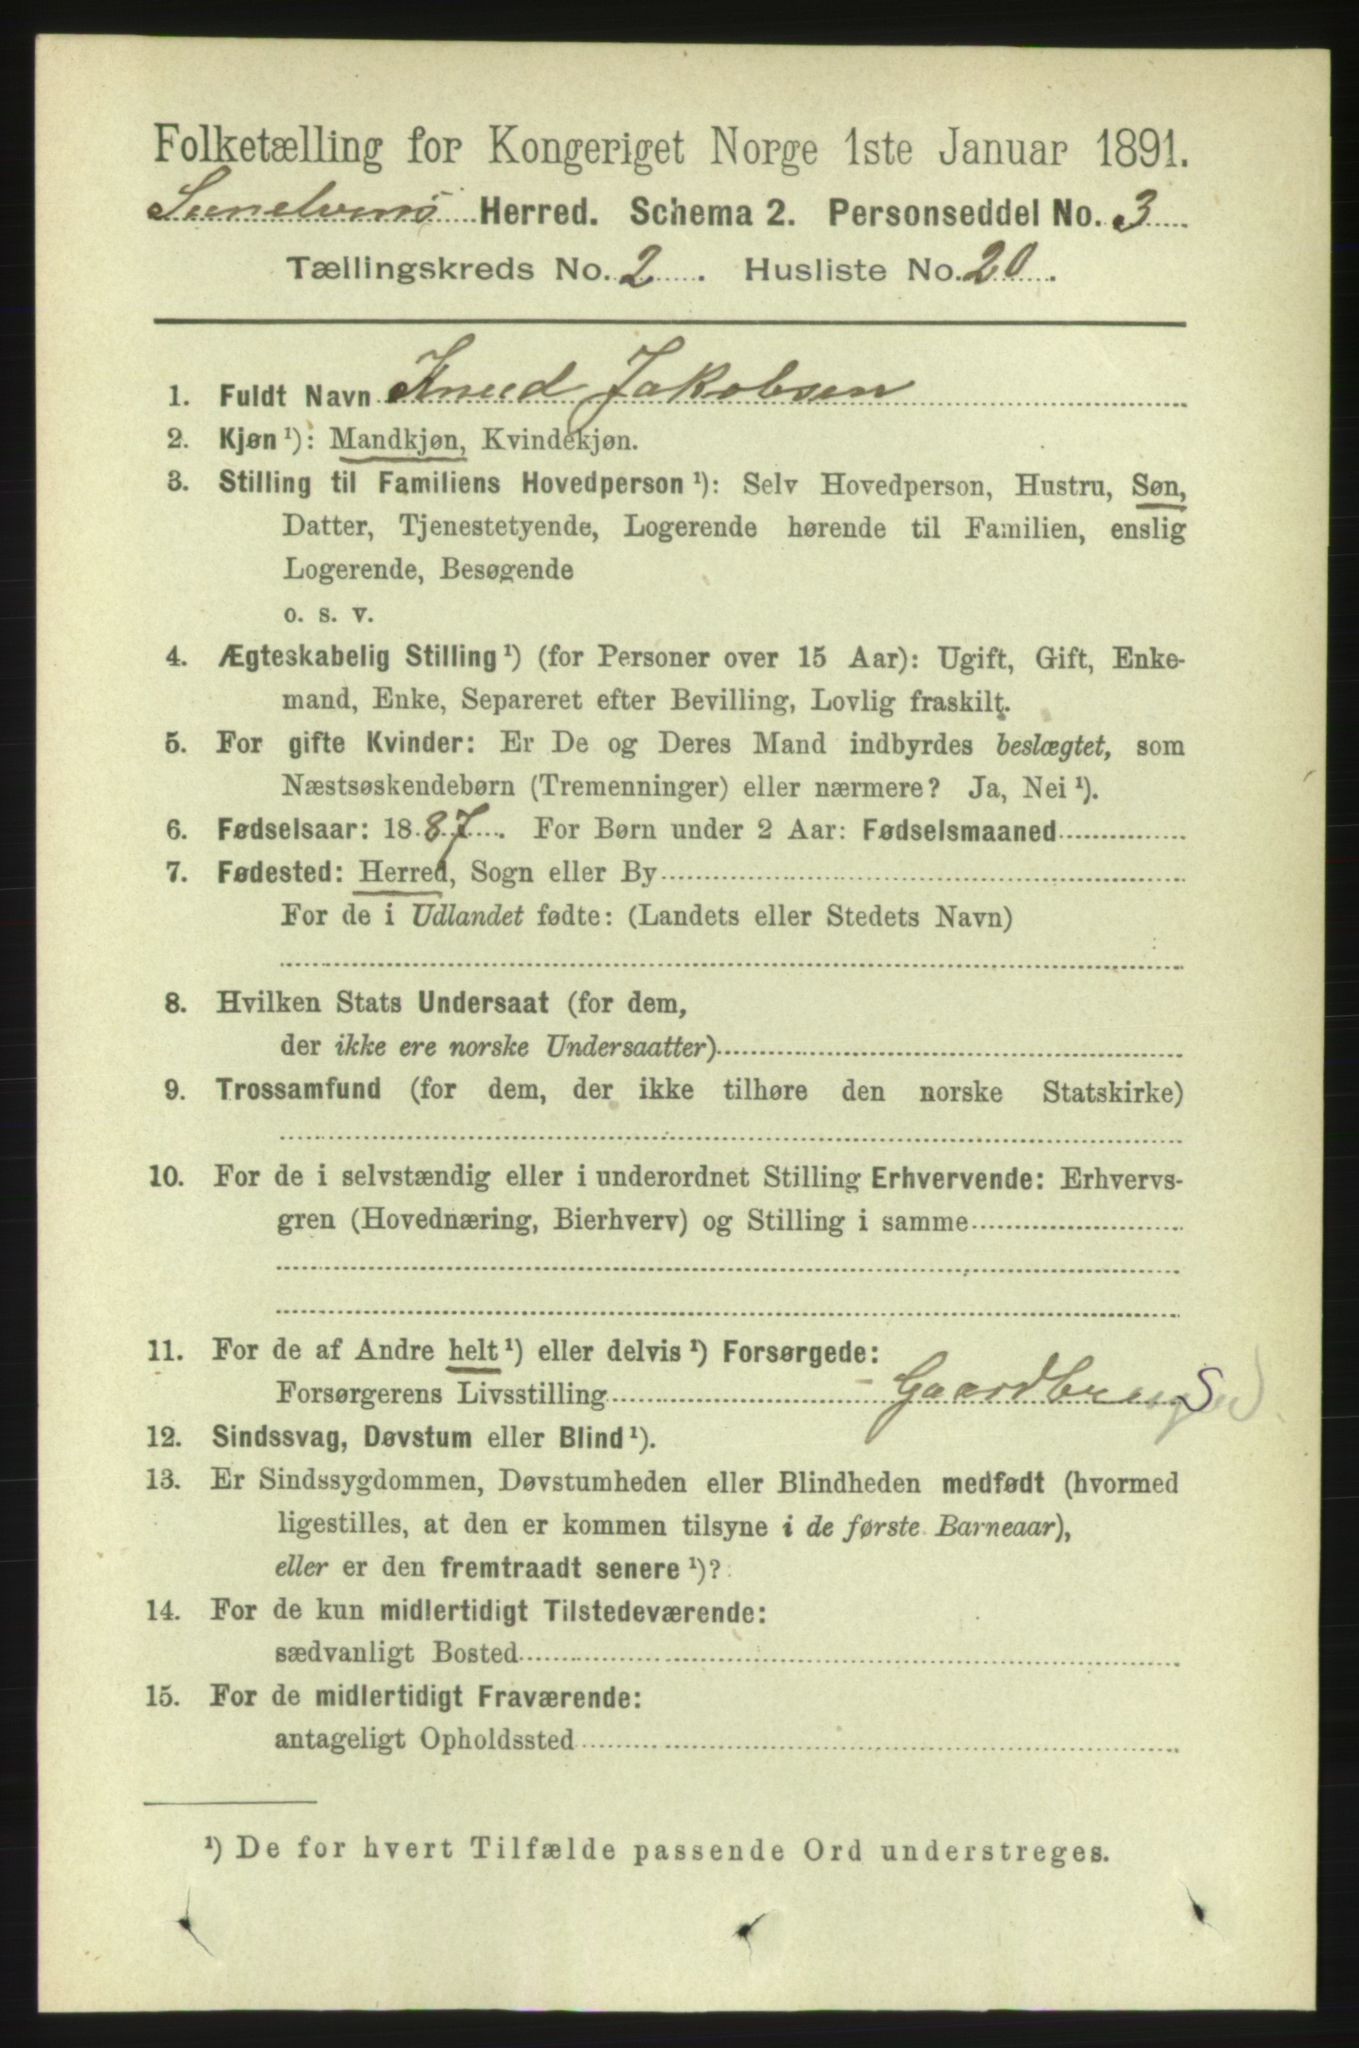 Folketælling for Kongeriget Norge 1ste Januar 1891.
Sunelvens Herred. Schema 2. Personseddel No. 3
Tællingskreds No. 2. Husliste No. 20.
1. Fuldt Navn Knud Jakobsen
2. Kjøn¹): Mandkjøn, Kvindekjøn.
3. Stilling til Familiens Hovedperson¹): Selv Hovedperson, Hustru, Søn,
Datter, Tjenestetyende, Logerende hørende til Familien, enslig
Logerende, Besøgende
o. s. v.
4. Ægteskabelig Stilling¹) (for Personer over 15 Aar): Ugift, Gift, Enke-
mand, Enke, Separeret efter Bevilling, Lovlig fraskilt.
5. For gifte Kvinder: Er De og Deres Mand indbyrdes beslægtet, som
Næstsøskendebørn (Tremenninger) eller nærmere? Ja, Nei¹).
6. Fødselsaar: 1887. For Børn under 2 Aar: Fødselsmaaned
7. Fødested: Herred, Sogn eller By
For de i Udlandet fødte: (Landets eller Stedets Navn)
8. Hvilken Stats Undersaat (for dem,
der ikke ere norske Undersaatter)
9. Trossamfund (for dem, der ikke tilhøre den norske Statskirke)
10. For de i selvstændig eller i underordnet Stilling Erhvervende: Erhvervs-
gren (Hovednæring, Bierhverv) og Stilling i samme
11. For de af Andre helt¹) eller delvis¹) Forsørgede:
Forsørgerens Livsstilling Gaardbrug S
12. Sindssvag, Døvstum eller Blind¹).
13. Er Sindssygdommen, Døvstumheden eller Blindheden medfødt (hvormed
ligestilles, at den er kommen tilsyne i de første Barneaar),
eller er den fremtraadt senere¹)?
14. For de kun midlertidigt Tilstedeværende:
sædvanligt Bosted
15. For de midlertidigt Fraværende:
antageligt Opholdssted
¹) De for hvert Tilfælde passende Ord understreges.